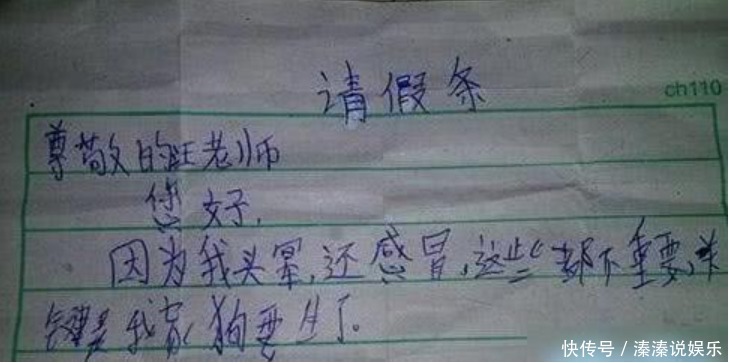 请假条
ch110
尊敬的汪老师
您好,
因为我头晕,还感冒,这些都不重要,关
键是我家狗要生了。
快传号/溱溱说娱乐